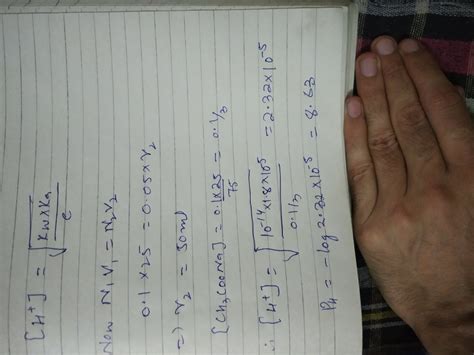 [H⁺] = √(Kw×Ka/c)
Now N₁V₁ = N₂V₂
0.1×25 = 0.05×V₂
=) V₂ = 50ml
[CH₃COONa] = 0.1×25/75 = 0.1/3
∴ [H⁺] = √(10⁻¹⁴×1.8×10⁻⁵/0.1/3) = 2.32×10⁻⁵
PH = -log 2.32×10⁻⁵ = 8.63